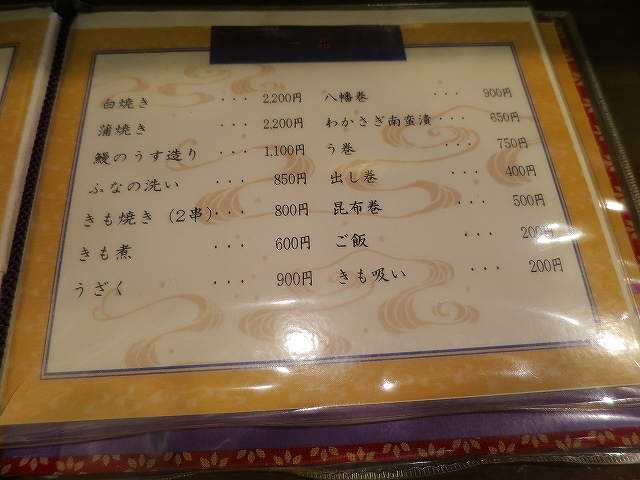 一品
白焼き ・・・ 2,200円
蒲焼き ・・・ 2,200円
鰻のうす造り ・・・ 1,100円
ふなの洗い ・・・ 850円
きも焼き（2串）・・・ 800円
きも煮 ・・・ 600円
うざく ・・・ 900円
八幡巻 ・・・ 900円
わかさぎ南蛮漬 ・・・ 650円
う巻 ・・・ 750円
出し巻 ・・・ 400円
昆布巻 ・・・ 500円
ご飯 ・・・ 200円
きも吸い ・・・ 200円